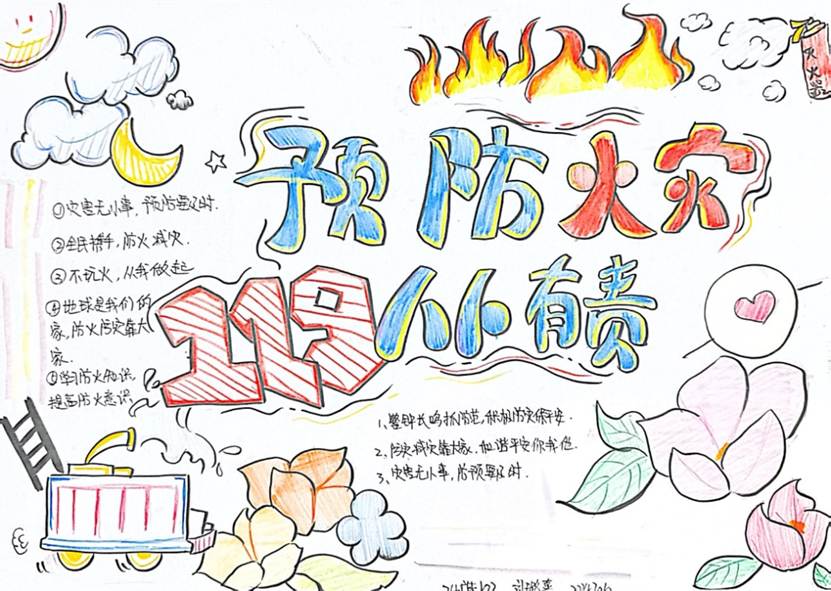 预防火灾
119人人有责
灭火器
①灾害无小事,预防要及时.
②全民携手,防火减灾.
③不玩火,从我做起
④地球是我们的
家,防火防灾靠大
家.
⑤学习防火知识,
提高防火意识.
1、警钟长鸣抓防范,积极防灾保平安.
2、防灾减灾靠大家,和谐平安你我他.
3、灾害无小事,防预要及时.